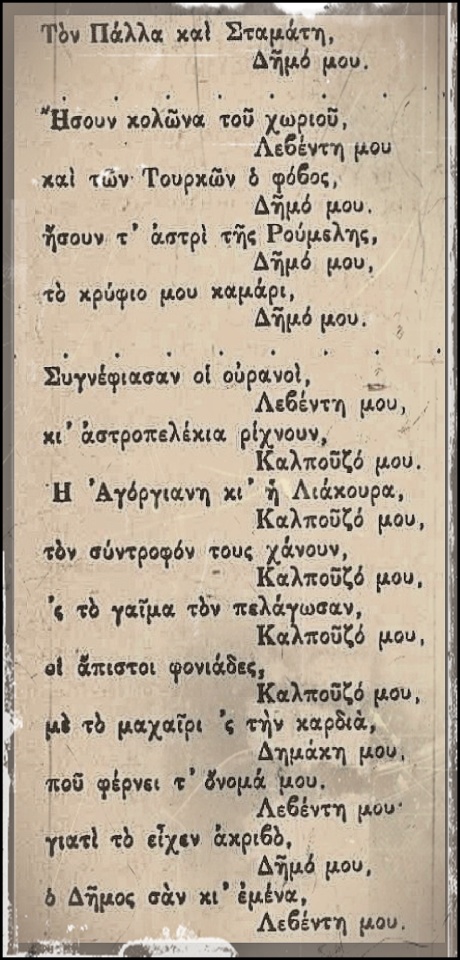 Τὸν Πάλλα καὶ Σταμάτη,
Δῆμό μου.
. . . . . . . .
Ἤσουν κολῶνα τοῦ χωριοῦ,
Λεϐέντη μου
καὶ τῶν Τουρκῶν ὁ φόβος,
Δῆμό μου.
ἤσουν τ' ἀστρὶ τῆς Ρούμελης,
Δῆμό μου,
τὸ κρύφιο μου καμάρι,
Δῆμό μου.
. . . . . . . .
Συγνέφιασαν οἱ οὐρανοὶ,
Λεϐέντη μου,
κι' ἀστροπελέκια ρίχνουν,
Καλποῦζό μου.
Ἡ Ἀγόργιανη κι' ἡ Λιάκουρα,
Καλποῦζό μου,
τὸν σύντροφόν τους χάνουν,
Καλποῦζό μου,
'ς τὸ γαῖμα τὸν πελάγωσαν,
Καλποῦζό μου,
οἱ ἄπιστοι φονιάδες,
Καλποῦζό μου,
μὲ τὸ μαχαῖρι 'ς τὴν καρδιὰ,
Δημάκη μου,
ποῦ φέρνει τ' ὄνομά μου.
Λεϐέντη μου·
γιατὶ τὸ εἶχεν ἀκριϐὸ,
Δῆμό μου,
ὁ Δῆμος σὰν κι' ἐμένα,
Λεϐέντη μου.